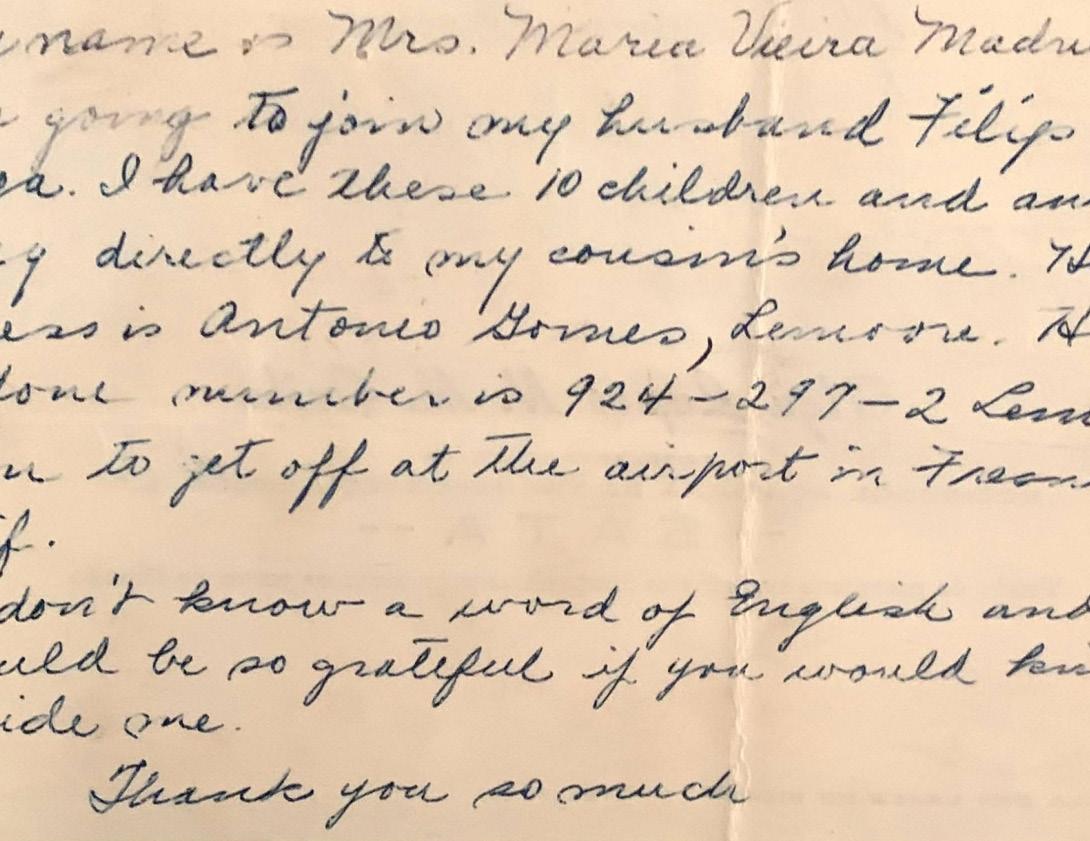 name is Mrs. Maria Vieira Madru
going to join my husband Filip
ga. I have these 10 children and am
g directly to my cousin's home. H
ess is Antonio Gomes, Lemoore. H
one number is 924-297-2 Lem
to get off at the airport in Fresn
if.
don't know a word of English and
uld be so grateful if you would kin
ide me.
Thank you so much